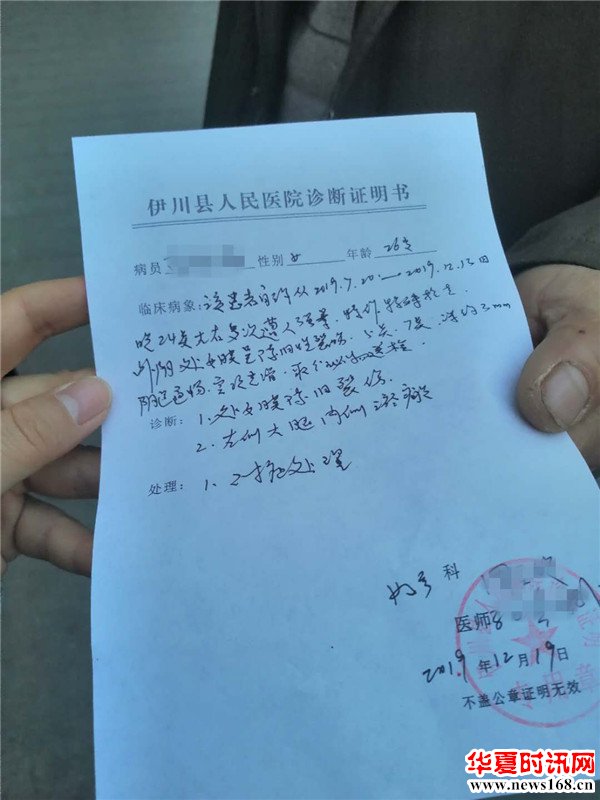 伊川县人民医院诊断证明书
病员 性别 女 年龄 26岁
临床病象:该患者自诉从2019.7.20.—2019.12.13日
晚24点左右多次遭人强 特 特殊检查.
外阴处女膜呈陈旧性裂伤,6点、7点,深约3mm
阴道通畅,宫颈光滑.
诊断:1.处女膜陈旧裂伤
2.左侧大腿内侧
处理:1.对症处理
妇 科
医师
2019年12月19日
不盖公章证明无效
华夏时讯网
www.news168.cn